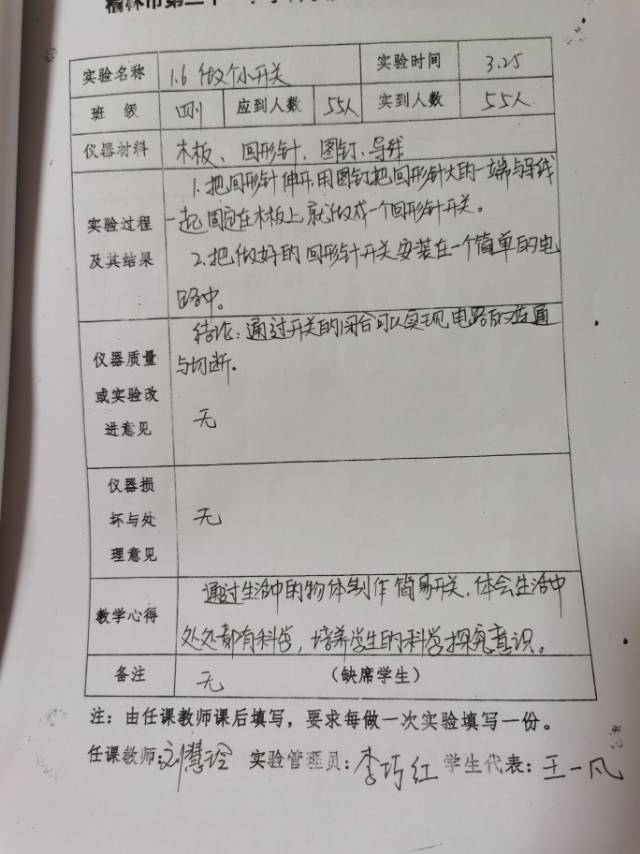 实验名称 1.6 做个小开关 实验时间 3.25
班 级 四1 应到人数 55人 实到人数 55人
仪器材料 木板、回形针、图钉、导线
实验过程及其结果
1.把回形针伸开,用图钉把回形针大的一端与导线
一起固定在木板上,就做成一个回形针开关。
2.把做好的回形针开关安装在一个简单的电
路中。
结论:通过开关的闭合可以实现电路的连通
与切断。
仪器质量
或实验改
进意见
无
仪器损
坏与处
理意见
无
教学心得
通过生活中的物体制作简易开关,体会生活中
处处都有科学,培养学生的科学探究意识。
备注 无 (缺席学生)
注:由任课教师课后填写,要求每做一次实验填写一份。
任课教师:刘慧玲 实验管理员:李巧红 学生代表:王一凡